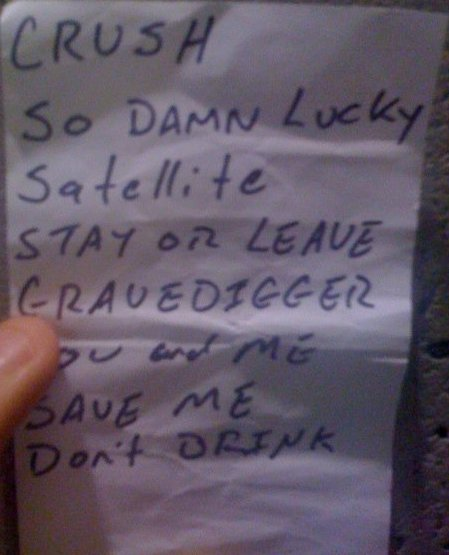 CRUSH
So DAMN Lucky
Satellite
STAY OR LEAVE
GRAVEDIGGER
ou and ME
SAVE ME
Don't DRINK